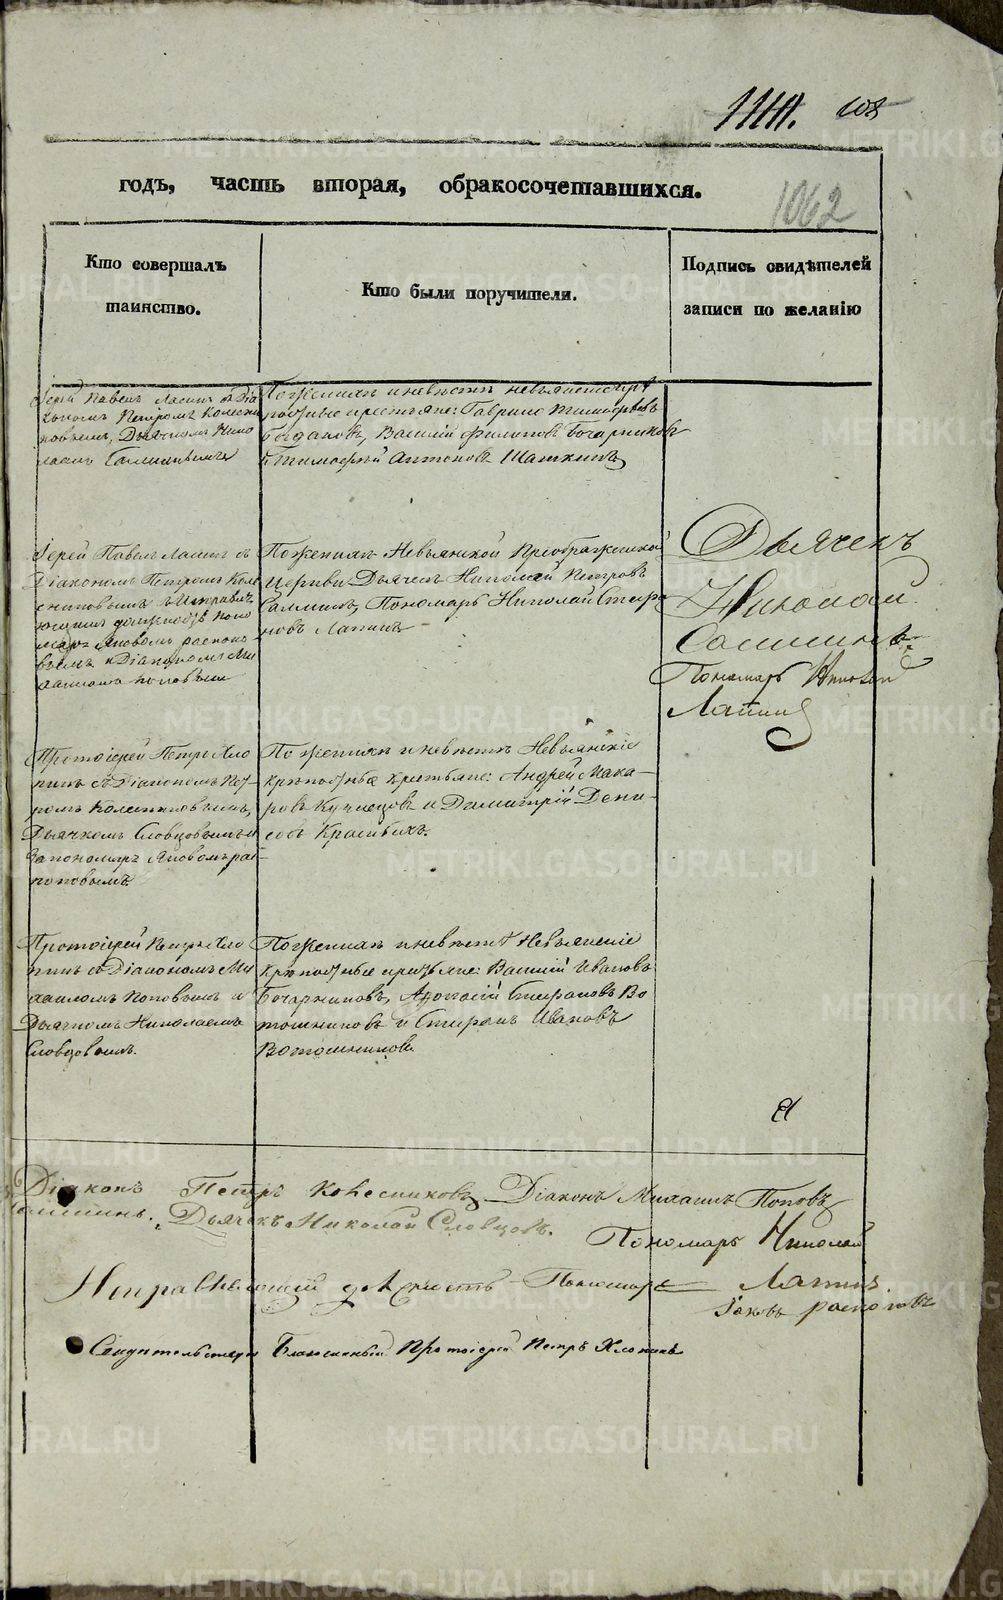 1111. 108
годъ, часть вторая, обракосочетавшихся.
1062
Кто совершалъ
таинство.
Кто были поручители.
Подпись свидѣтелей
записи по желанію
Іерей Павелъ Лапинъ съ Діа
кономъ Петромъ Колесни
ковымъ, Дьячкомъ Нико
лаемъ
По женихѣ и невѣстѣ невьянскіе крѣ
постные крестьяне: Гаврило Тимофѣевъ
Богдановъ, Василій Филиповъ Бочарниковъ
и Тимофѣй Антоновъ Шаткинъ
Іерей Павелъ Лапинъ съ
Діакономъ Петромъ Коле
сниковымъ и исправля
ющимъ должность поно
маря Яковомъ распопо
вымъ и Діакономъ Ми
хаиломъ поповымъ
По женихѣ Невьянской Преображенской
Церкви Дьячекъ Николай Петровъ
Пономарь Николай Стефа
новъ Лапинъ
Дьячекъ
Николай
Пономарь Николай
Лапинъ
Протоіерей Петръ Хло
пинъ съ Діакономъ Пет
ромъ Колесниковымъ,
Дьячкомъ Словцовымъ и
за пономаря Яковомъ рас
поповымъ.
По женихѣ и невѣстѣ Невьянскіе
крѣпостные крестьяне: Андрей Мака
ровъ Кузнецовъ и Димитрій Дени
совъ Красивыхъ.
Протоіерей Петръ Хло
пинъ съ Діакономъ Ми
хаиломъ Поповымъ и
Дьячкомъ Николаемъ
Словцовымъ.
По женихѣ и невѣстѣ Невьянскіе
крѣпостные крестьяне: Василій Ивановъ
Бочарниковъ, Афонасій Стефановъ Во
тошниковъ и Стефанъ Ивановъ
Вотошниковъ.
Діаконъ Петръ Колесниковъ Діаконъ Михаилъ Поповъ
Дьячекъ Николай Словцовъ.
Пономарь Николай
Лапинъ
Исправляющій должность Пономаря
Іаковъ распоповъ
Свидѣтельствовалъ Благочинный Протоіерей Петръ Хлопинъ
METRIKI.GASO-URAL.RU